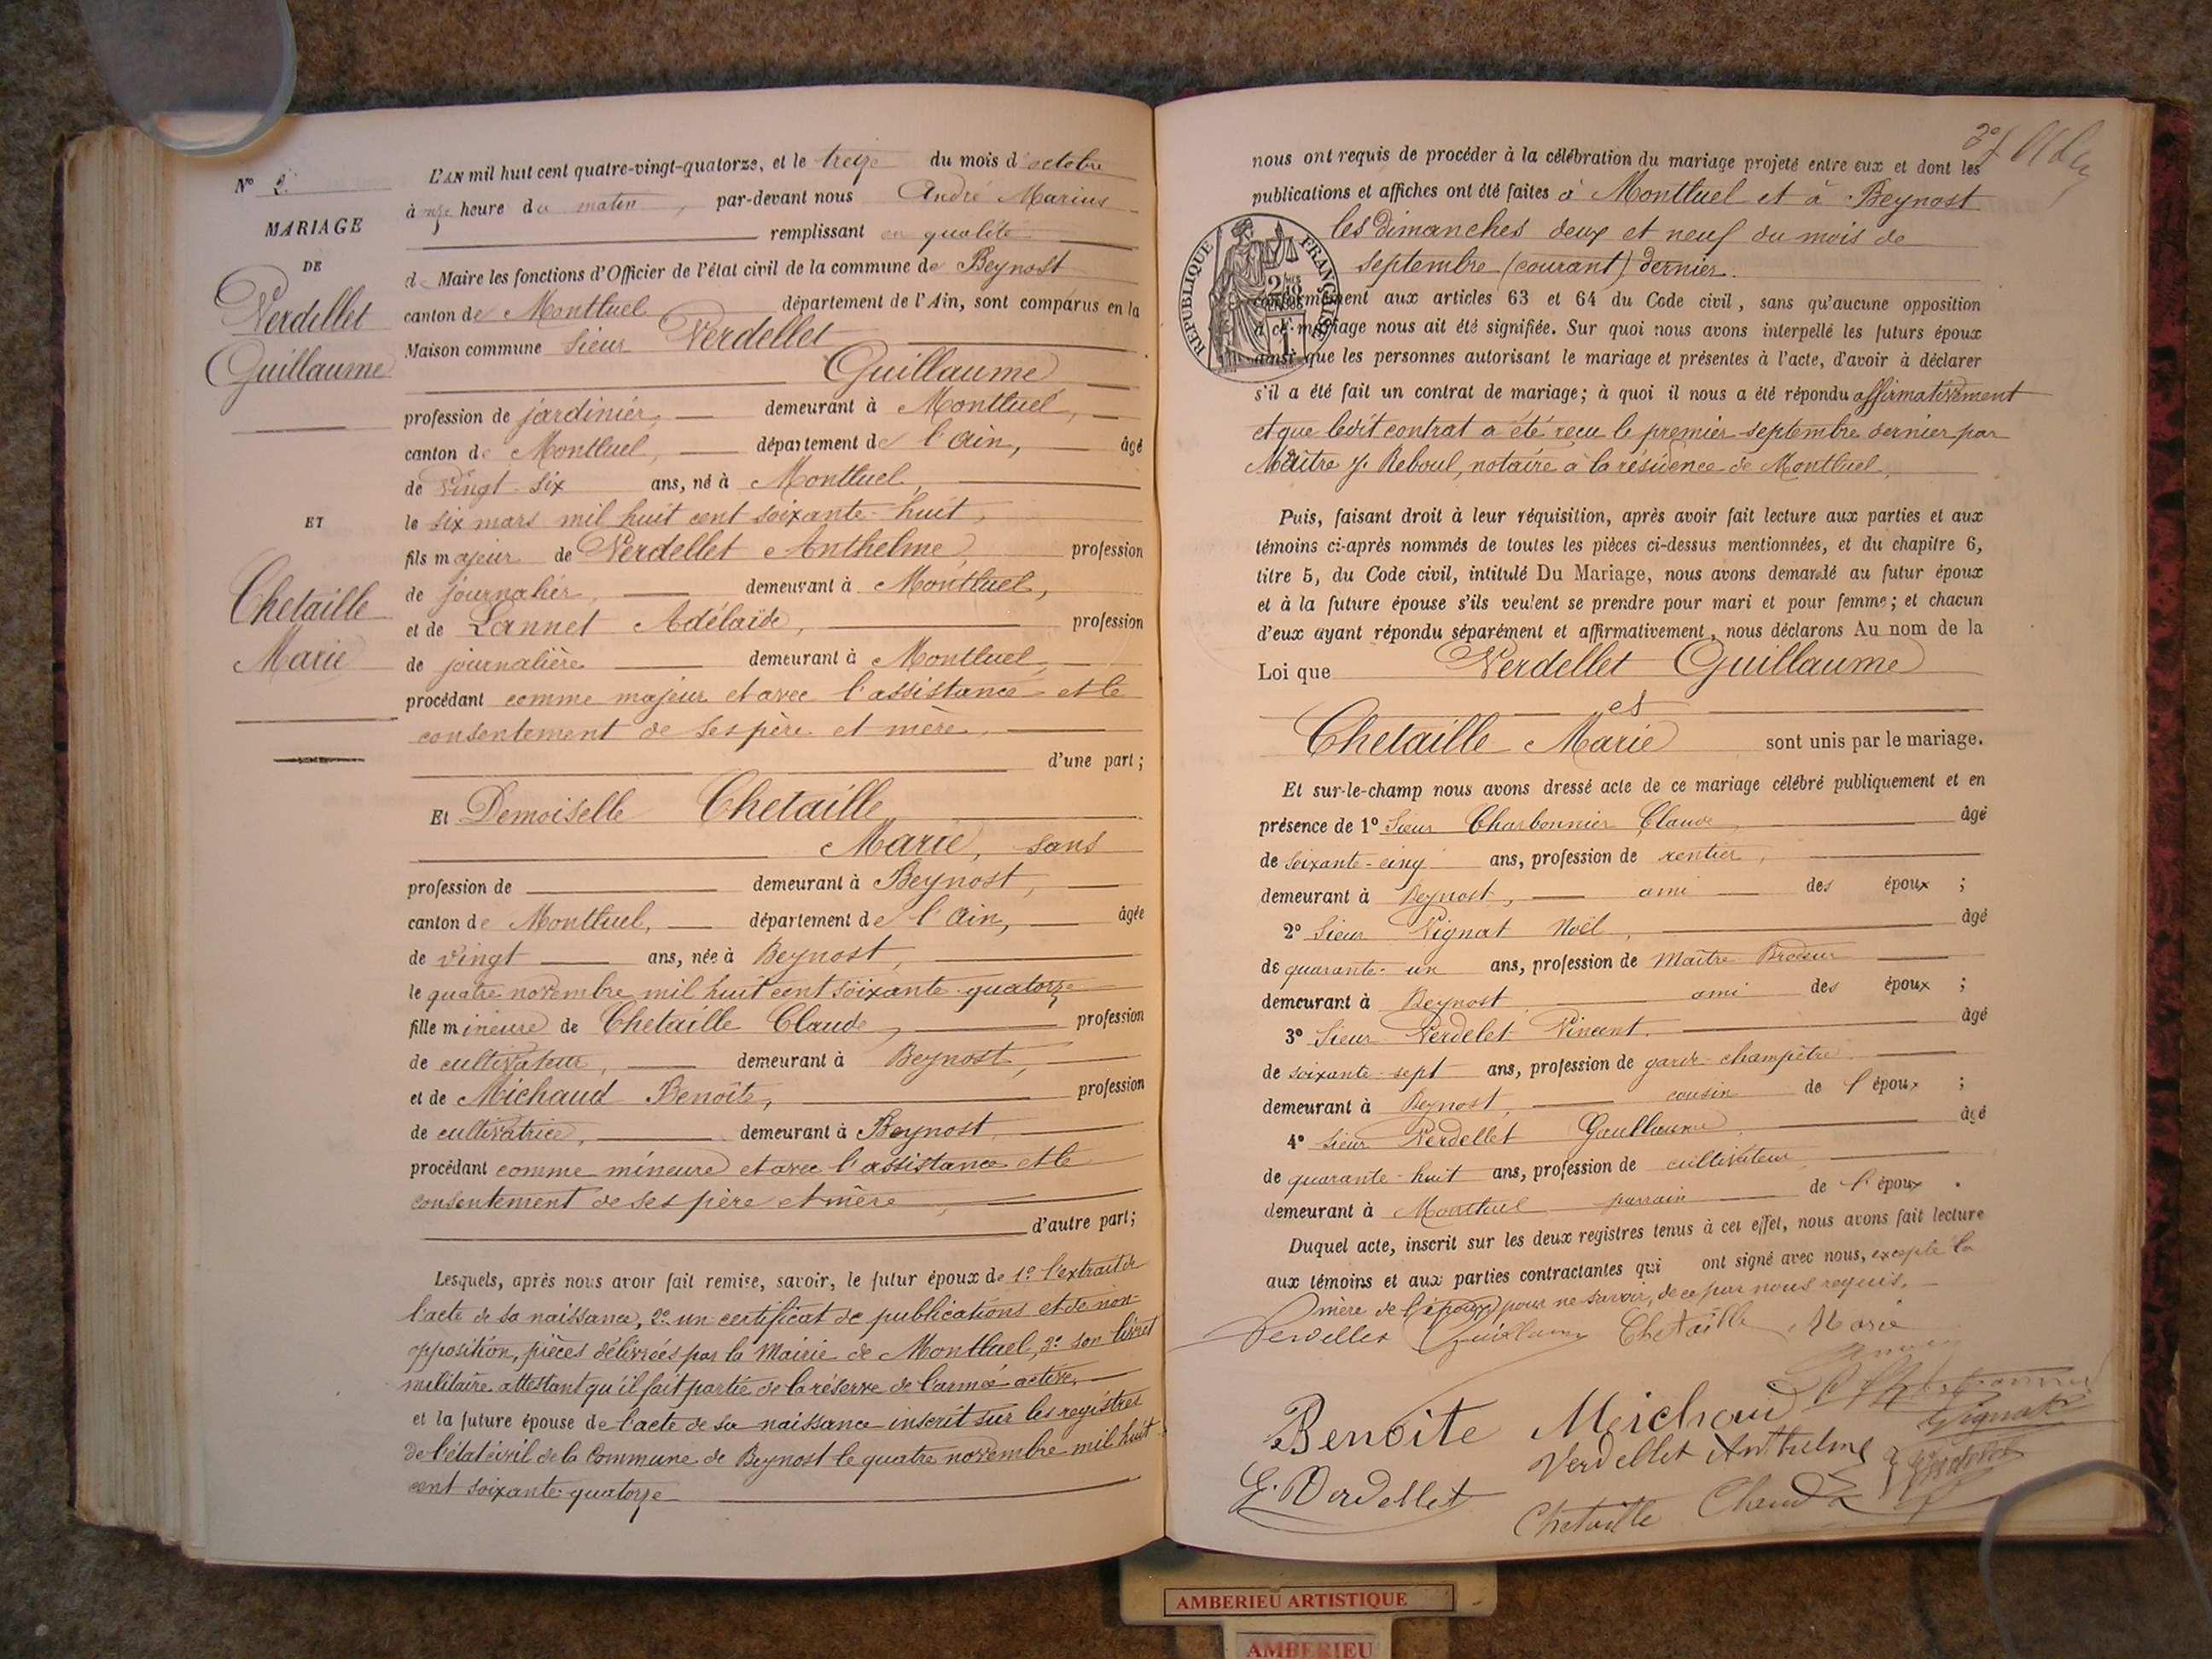 N° 2
MARIAGE
DE
Verdellet
Guillaume
ET
Chetaille
Marie
L'AN mil huit cent quatre-vingt-quatorze, et le treize du mois d'octobre
à onze heure du matin, par-devant nous André Marius
remplissant en qualité
de Maire les fonctions d'Officier de l'état civil de la commune de Beynost
canton de Montluel département de l'Ain, sont comparus en la
Maison commune Sieur Verdellet
Guillaume
profession de jardinier, demeurant à Montluel,
canton de Montluel, département de l'Ain, âgé
de vingt-six ans, né à Montluel,
le six mars mil huit cent soixante-huit,
fils majeur de Verdellet Anthelme, profession
de journalier, demeurant à Montluel,
et de Lannet Adélaïde, profession
de journalière demeurant à Montluel,
procédant comme majeur et avec l'assistance et le
consentement de ses père et mère,
d'une part;
Et Demoiselle Chetaille
Marie, sans
profession de demeurant à Beynost,
canton de Montluel, département de l'Ain, âgée
de vingt ans, née à Beynost,
le quatre novembre mil huit cent soixante-quatorze
fille mineure de Chetaille Claude, profession
de cultivateur, demeurant à Beynost,
et de Michaud Benoîte, profession
de cultivatrice, demeurant à Beynost,
procédant comme mineure et avec l'assistance et le
consentement de ses père et mère,
d'autre part;
Lesquels, après nous avoir fait remise, savoir, le futur époux de 1° l'extrait de
l'acte de sa naissance, 2° un certificat de publications et de non-
opposition, pièces délivrées par la Mairie de Montluel, 3° son livret
militaire attestant qu'il fait partie de la réserve de l'armée active,
et la future épouse de l'acte de sa naissance inscrit sur les registres
de l'état civil de la Commune de Beynost le quatre novembre mil huit
cent soixante-quatorze
nous ont requis de procéder à la célébration du mariage projeté entre eux et dont les
publications et affiches ont été faites à Montluel et à Beynost
les dimanches deux et neuf du mois de
septembre (courant) dernier.
RÉPUBLIQUE FRANÇAISE
conformément aux articles 63 et 64 du Code civil, sans qu'aucune opposition
à ce mariage nous ait été signifiée. Sur quoi nous avons interpellé les futurs époux
ainsi que les personnes autorisant le mariage et présentes à l'acte, d'avoir à déclarer
s'il a été fait un contrat de mariage; à quoi il nous a été répondu affirmativement
et que ledit contrat a été reçu le premier septembre dernier par
Maître J. Reboul, notaire à la résidence de Montluel,
Puis, faisant droit à leur réquisition, après avoir fait lecture aux parties et aux
témoins ci-après nommés de toutes les pièces ci-dessus mentionnées, et du chapitre 6,
titre 5, du Code civil, intitulé Du Mariage, nous avons demandé au futur époux
et à la future épouse s'ils veulent se prendre pour mari et pour femme; et chacun
d'eux ayant répondu séparément et affirmativement, nous déclarons Au nom de la
Loi que Verdellet Guillaume
et
Chetaille Marie sont unis par le mariage.
Et sur-le-champ nous avons dressé acte de ce mariage célébré publiquement et en
présence de 1° Sieur Charbonnier Claude, âgé
de soixante-cinq ans, profession de rentier,
demeurant à Beynost, ami des époux;
2° Sieur Vignat Noël, âgé
de quarante-un ans, profession de Maître Brodeur
demeurant à Beynost ami des époux;
3° Sieur Verdelet Vincent. âgé
de soixante-sept ans, profession de garde-champêtre
demeurant à Beynost, cousin de l'époux;
4° Sieur Verdellet Guillaume, âgé
de quarante-huit ans, profession de cultivateur
demeurant à Montluel parrain de l'époux.
Duquel acte, inscrit sur les deux registres tenus à cet effet, nous avons fait lecture
aux témoins et aux parties contractantes qui ont signé avec nous, excepté la
mère de l'époux, pour ne savoir, de ce par nous requis.
Verdellet Guillaume Chetaille Marie
Benoite Meichaud
Vignat
Verdellet Anthelme
G. Verdellet
Chetaille Claude
AMBERIEU ARTISTIQUE
AMBERIEU